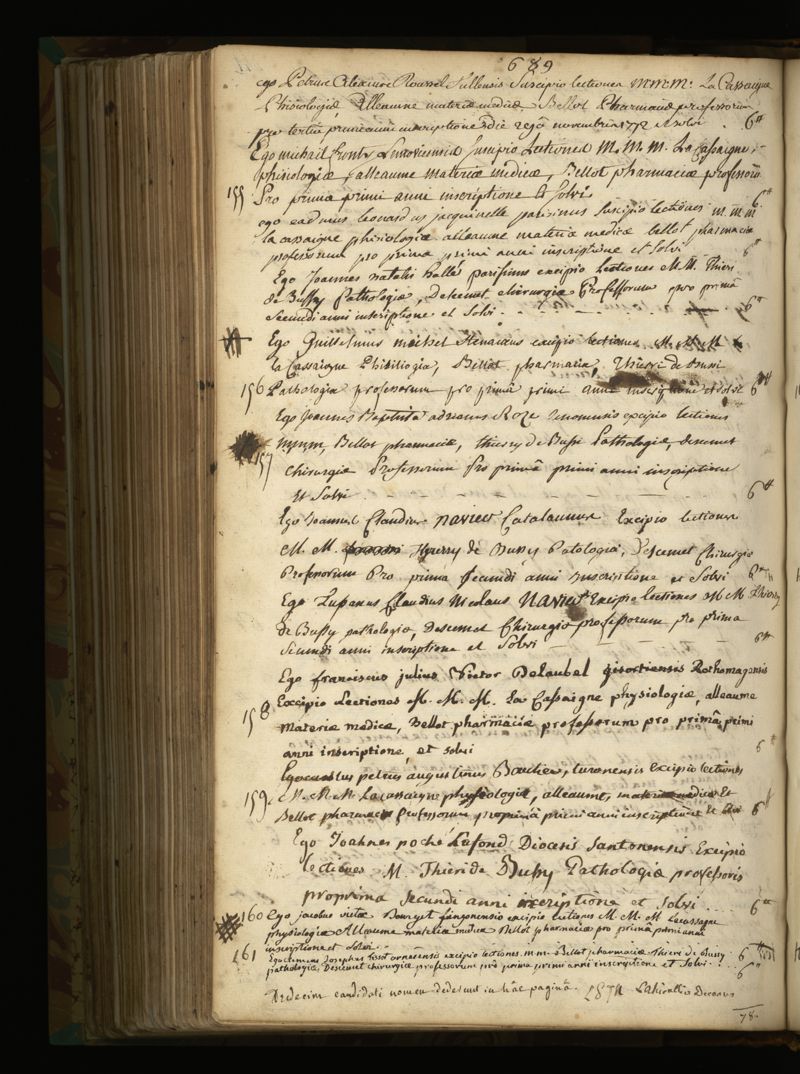 689
ego Petrus Alexius Roussel Sullensis Suscipio lectiones m.m.m. La Cassaigne
Phisiologiæ Alleaume materiæ medicæ Bellot Pharmaciæ professorum
pro tertiâ primi anni inscriptione die novembris 1772 et solvi 6#
Ego michaël Suscipio Lectiones M. M. M. La Cassaigne
phisiologiæ, alleaume materiæ medicæ, Bellot pharmaciæ professorum
155 Pro primâ primi anni inscriptione Et Solvi 6#
ego leonardus jacquinelle parisinus Suscipio lectiones m. m. m.
la cassaigne phisiologiæ alleaume materiæ medicæ bellot pharmaciæ
professorum pro primâ primi anni inscriptione et solvi 6#
Ego Joannes natalis hallé parisinus excipio Lectiones M.M. Thieri
de Bussy Pathologiæ, Descemet chirurgiæ Professorum pro primâ
secundi anni inscriptione et Solvi 6#
Ego Guillelmus michel excipio lectiones M. M. M.
la Cassaigne Bellot pharmacia, Thierri de Bussi
156 Pathologia professorum pro primâ primi anni inscriptione et solvi 6#
Ego Joannes Baptista adrianus Roze excipio lectiones
m.m.m, Bellot pharmaciæ, thierry de Bussi Pathologiæ, descemet
157 chirurgiæ Professorum Pro primâ primi anni inscriptione
et Solvi 6#
Ego Joannes Claudius navier Catalaunus Excipio lectiones
M. M. Thierry de Bussy Patologia, Descemet Chirurgiæ
Professorum Pro prima secundi anni inscriptione et Solvi 6#
Ego Claudius Nicolaus Navier Excipio lectiones M M Thierry
de Bussy pathologiæ, Descemet Chirurgiæ professorum pro prima
secundi anni inscriptione et Solvi 6#
Ego franciscus julius Victor Delaubel gisortiensis Rothomagensis
158 Excipio Lectiones M. M. M. La Cassaigne physiologiæ, alleaume
materiæ medicæ, Bellot pharmaciæ professorum pro primâ primi
anni inscriptione, et solvi 6
Ego petrus augustinus turonensis Excipio lectiones
159 M. M. M. Lacassaigne physiologiæ, alleaume, materiæ medicæ Et
Bellot pharmaciæ Professorum pro primâ primi anni inscriptione Et solvi 6#
Ego Joahnes poché Lafond Diocesis Santonensis Excipio
lectiones M. Thieri de Bussy Pathologiæ professoris
pro prima secundi anni inscriptione et Solvi 6#
160 Ego jacobus excipio lectiones M. M. M. Lacassagne
physiologiæ Alleaume materiæ medicæ Bellot pharmaciæ pro primâ primi anni
inscriptione et Solvi
161 Josephus excipio lectiones m.m. Bellot pharmaciæ Thieri de Bussy 6#
pathologiæ, Descemet chirurgiæ professorum pro prima primi anni inscriptione et Solvi 6#
candidati nomen dederunt in hâc paginâ. Decanus
78.